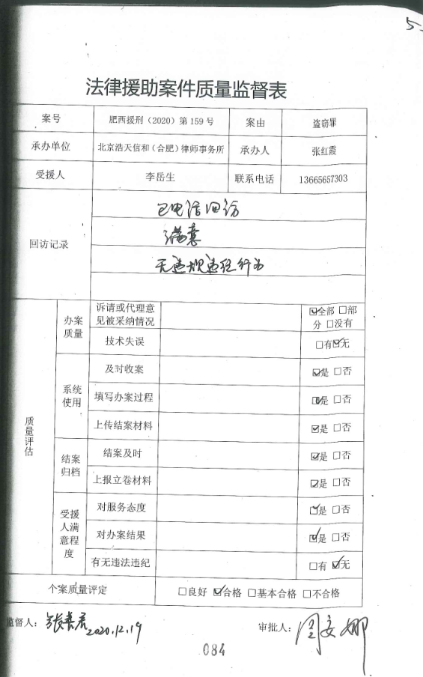 法律援助案件质量监督表
案号 肥西援刑（2020）第159号 案由 盗窃罪
承办单位 北京浩天信和（合肥）律师事务所 承办人 张红霞
受援人 李岳生 联系电话 13665657303
回访记录
已电话回访
满意
无违规违纪行为
质量评估
办案质量
诉请或代理意见被采纳情况 ☑全部 □部分 □没有
技术失误 □有 ☑无
系统使用
及时收案 ☑是 □否
填写办案过程 ☑是 □否
上传结案材料 ☑是 □否
结案归档
结案及时 ☑是 □否
上报立卷材料 ☑是 □否
受援人满意程度
对服务态度 ☑是 □否
对办案结果 ☑是 □否
有无违法违纪 □有 ☑无
个案质量评定 □良好 ☑合格 □基本合格 □不合格
监督人： 2020.12.19 审批人：
084